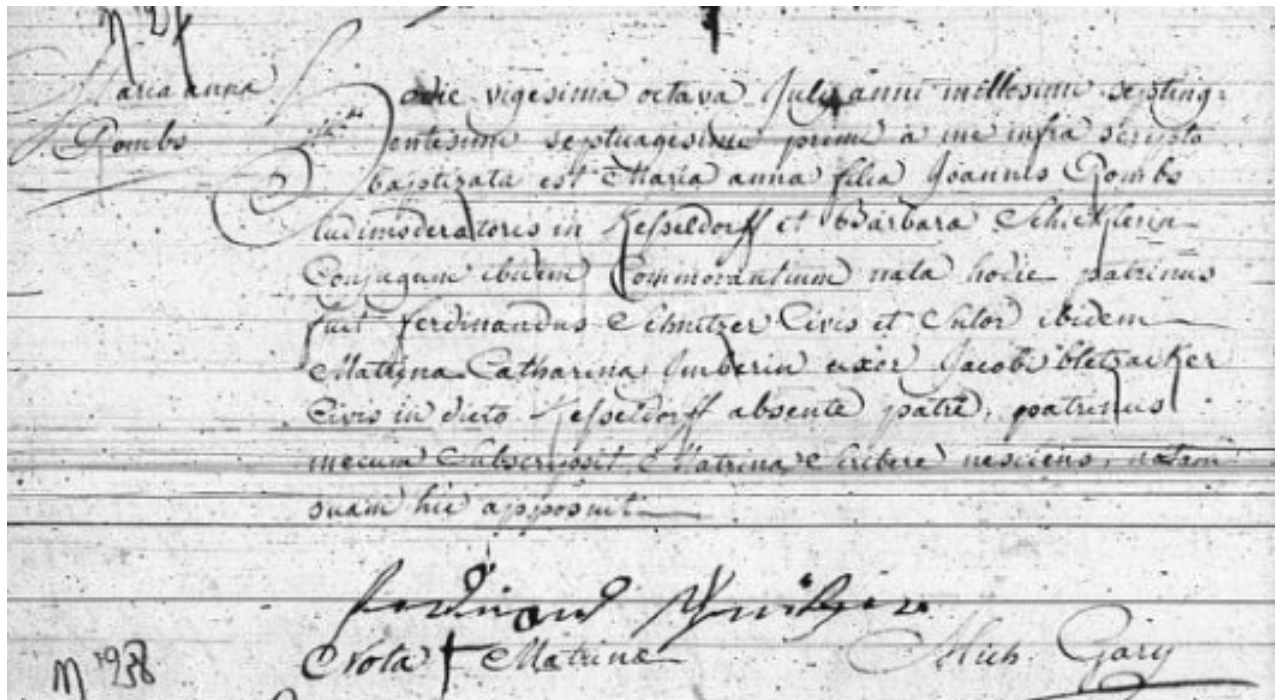 Maria anna
Gombs
Hodie vigesima octava Julij anni millesimi septing-
entesimi septuagesimi primi à me infra scripto
baptizata est Maria anna filia Joannis Gombs
ludimoderatoris in Kesseldorff et Barbara Schicklerin
Conjugum ibidem Commorantium nata hodie patrinus
fuit ferdinandus Schnitzer Civis et Sutor ibidem
Matrina Catharina Imberin uxor Jacobi bletzacker
Civis in dicto Kesseldorff absente patre, patrinus
mecum Subscripsit, Matrina Scribere nesciens, notam
suam hic apposuit
ferdinand
Nota + Matrinæ Mich. Gary